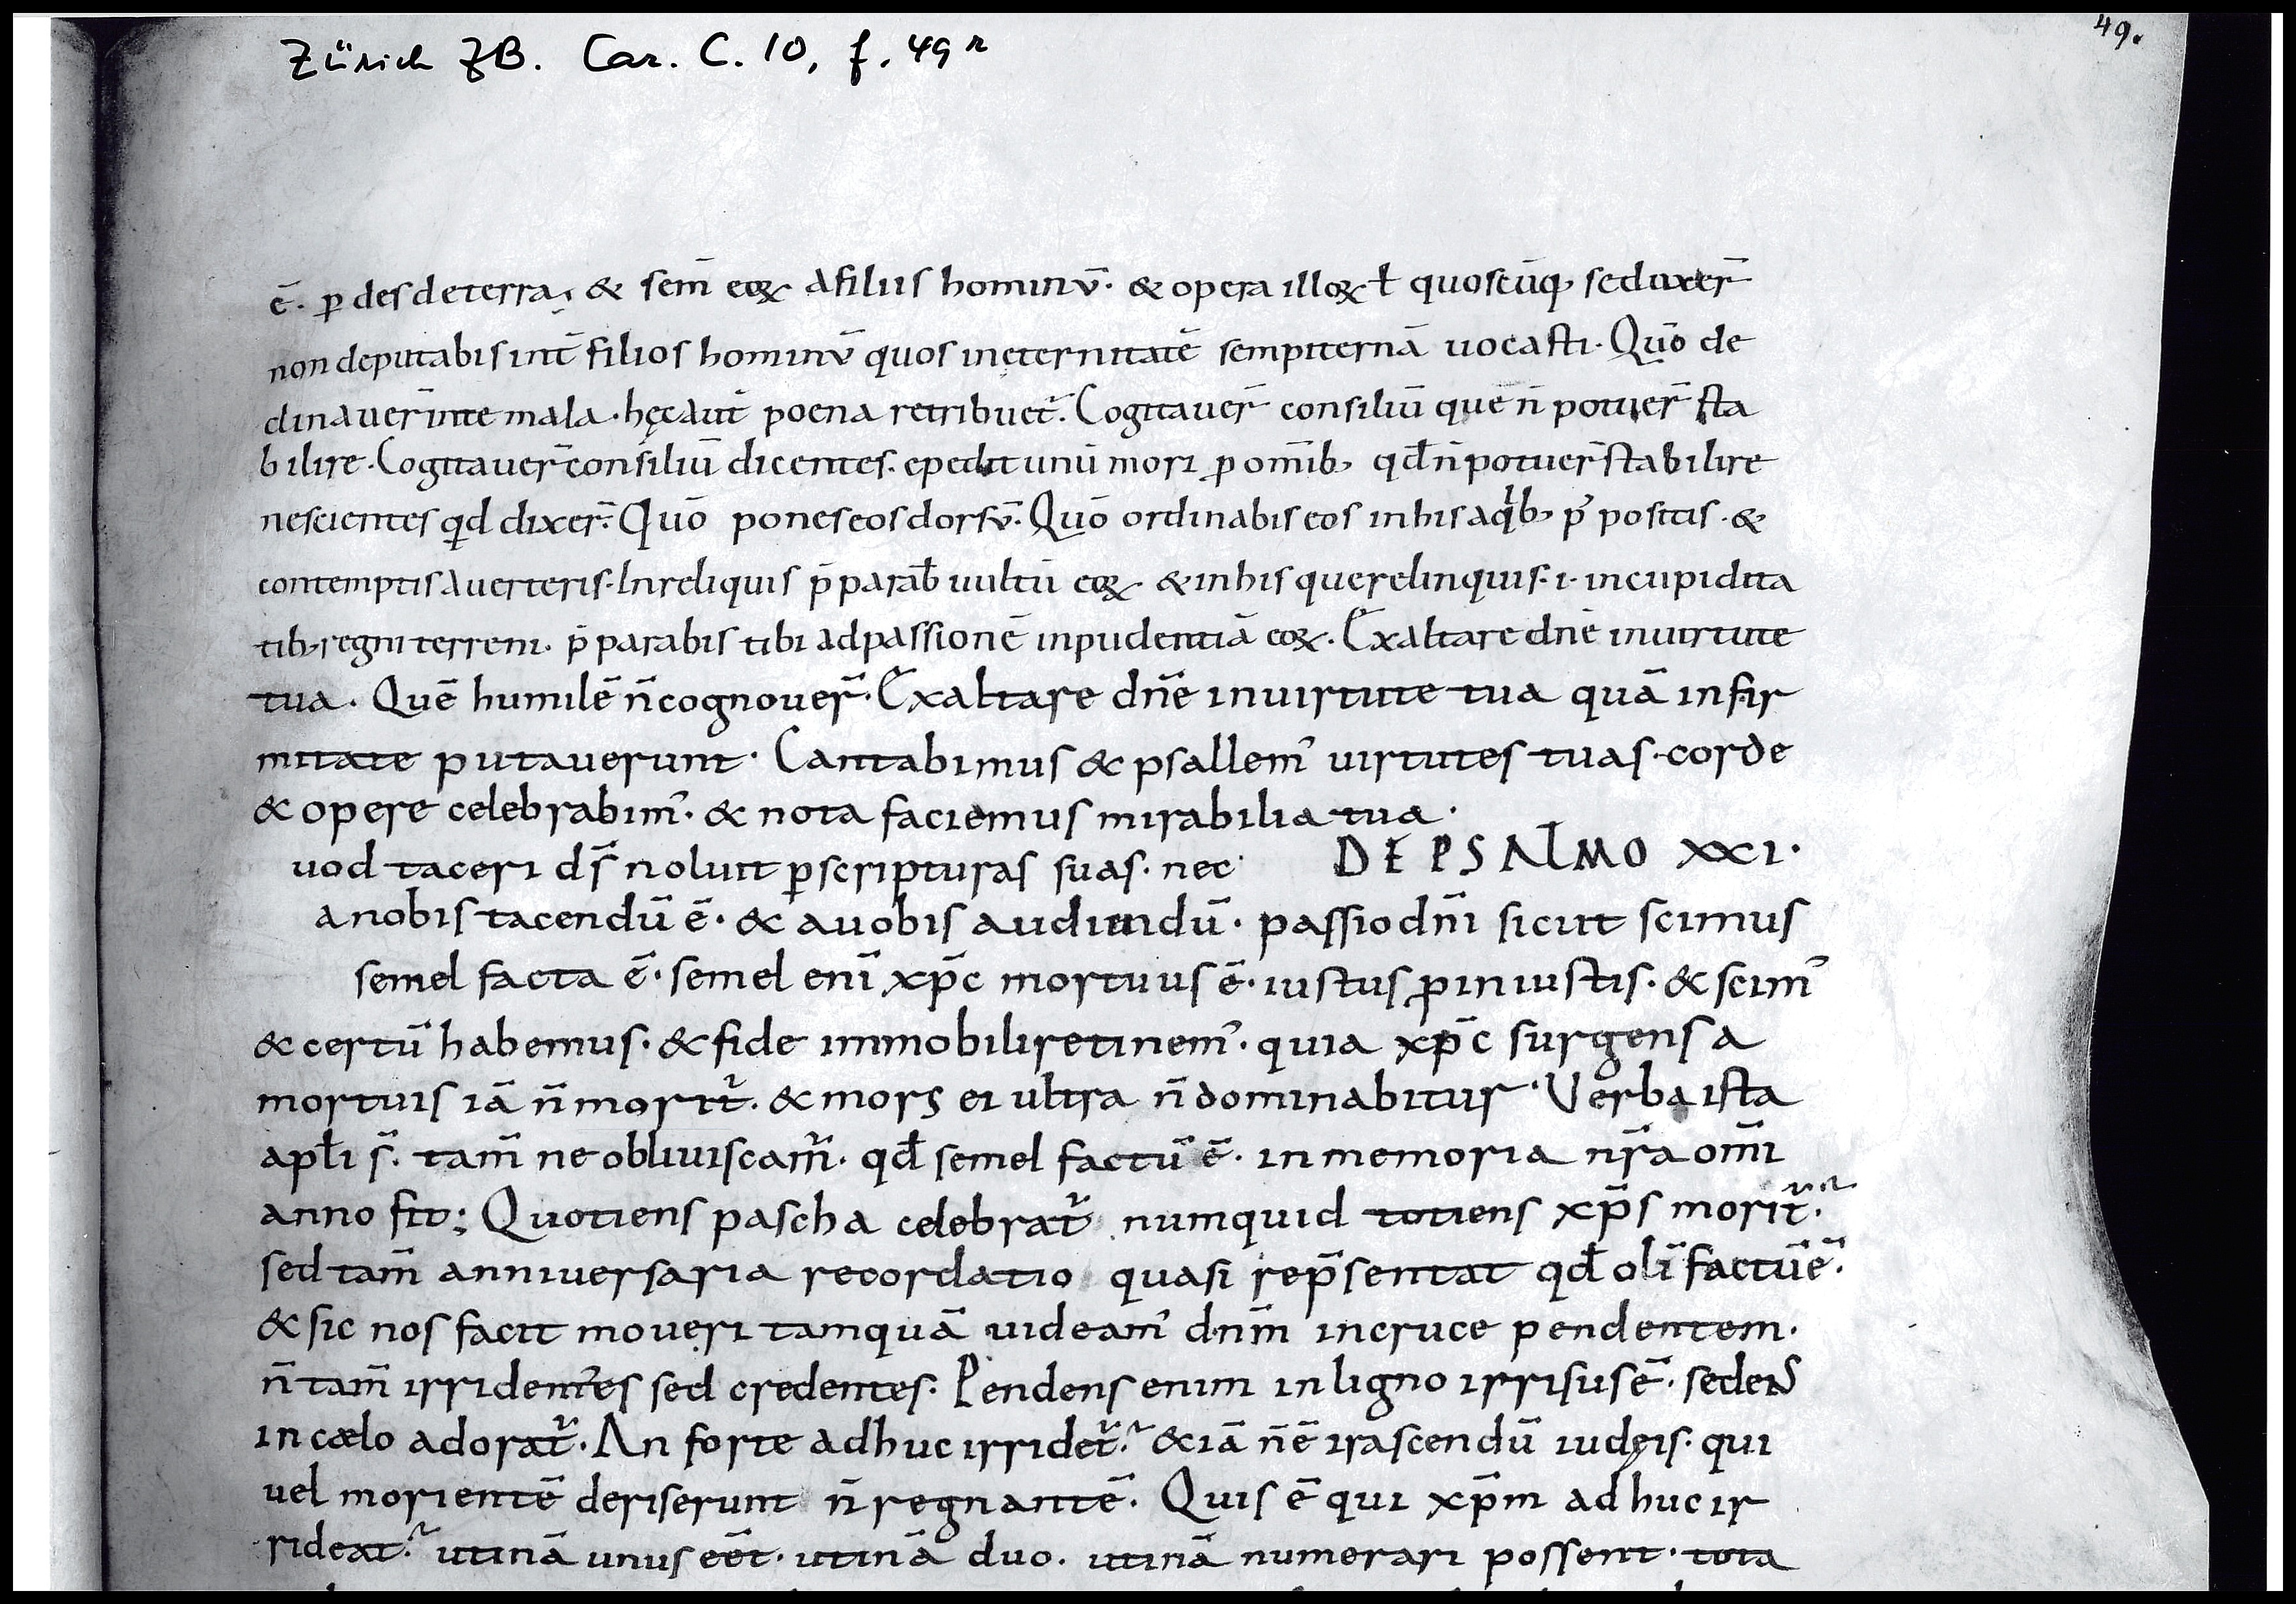 Zürich ZB. Car. C. 10, f. 49r
49.
ē. ꝑ des de terra, & sem̄ eoꝝ A filiis hominū. & opera illoꝝ ł quoscūq; seduxer̄
non deputabis int̄ filios hominū quos in ęternitatē sempiternā uocasti. Quō de
clinauer̄ in te mala. hęc aut̄ poena retribuet᷑. Cogitauer̄ consiliū que n̄ potuer̄ sta
bilire. Cogitauer̄ consiliū dicentes. expedit unū mori ꝓ omīb; qd̄ n̄ potuer̄ stabilire
nescientes qd dixer̄. Quō pones eos dorsū. Quō ordinabis eos in his a qͥb; p̄ positis. &
contemptis auerteris. In reliquis p̄parab̄ uultū eoꝝ & in his que relinquis. i. in cupidita
tib; regni terreni. p̄parabis tibi ad passionē inpudentiā eoꝝ. Exaltare dn̄e in uirtute
tua. Quē humilē n̄ cognouer̄. Exaltare dn̄e in uirtute tua quā infir
mitate putauerunt. Cantabimus & psallem᾽ uirtutes tuas. corde
& opere celebrabim᾽. & nota faciemus mirabilia tua.
uod taceri ds̄ noluit ꝑ scripturas suas. nec DE PSALMO XXI.
a nobis tacendū ē. & a uobis audiendū. passio dn̄i sicut scimus
semel facta ē. semel enī xp̄c mortuus ē. iustus ꝓ iniustis. & scim᾽
& certū habemus. & fide immobili retinem᾽. quia xp̄c surgens a
mortuis iā n̄ morit᷑. & mors ei ultra n̄ dominabitur. Verba ista
apłi s̄. tam̄ ne obliuiscam᷑. qd̄ semel factū ē. in memoria nr̄a omī
anno fit; Quotiens pascha celebrat᷑ numquid totiens xp̄s morit᷑.
sed tam̄ anniuersaria recordatio quasi rep̄sentat qd̄ olī factū ē.
& sic nos facit moueri tamquā uideam᾽ dnm̄ in cruce pendentem.
n̄ tam̄ irridentes sed credentes. Pendens enim in ligno irrisus ē. sedens
in cælo adorat᷑. An forte adhuc irridet᷑. & iā n̄ ē irascendū iudęis. qui
uel morientē deriserunt n̄ regnantē. Quis ē qui xp̄m adhuc ir
rideat. utinā unus eēt. utinā duo. utinā numerari possent. tota